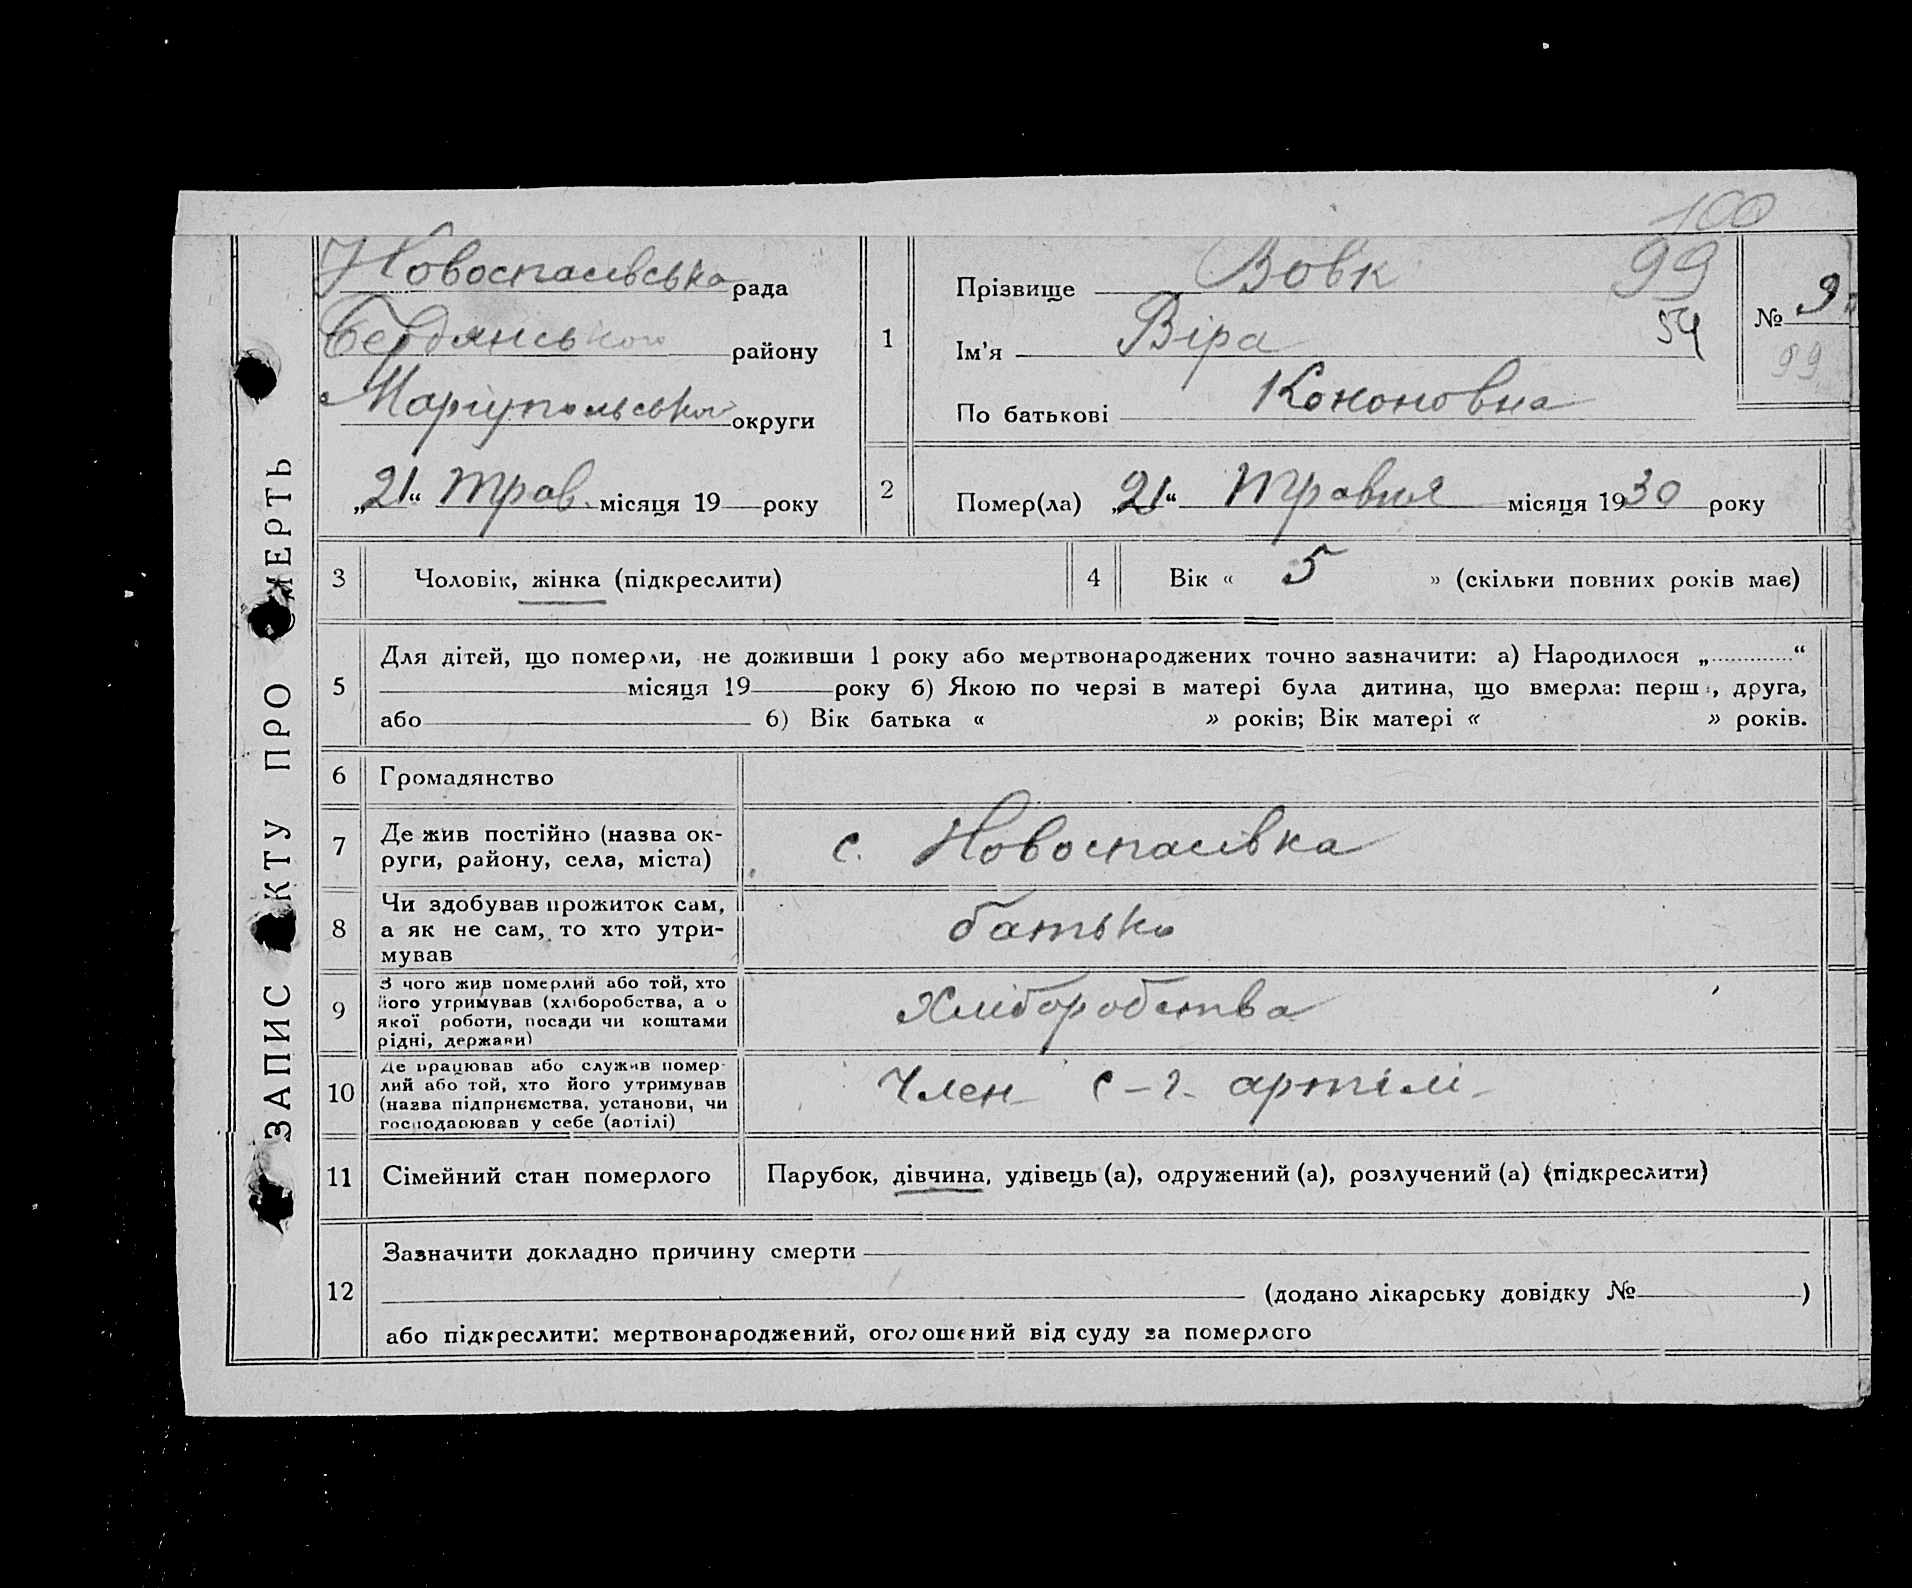 100
ЗАПИС АКТУ ПРО СМЕРТЬ
Новоспасівська рада
Бердянського району
Маріупольської округи
„21“ трав. місяця 19 року
1
Прізвище Вовк 99
Ім'я Віра 54
По батькові Кононовна
№ 9
99
2
Помер(ла) „21“ травня місяця 1930 року
3
Чоловік, жінка (підкреслити)
4
Вік « 5 » (скільки повних років має)
5
Для дітей, що померли, не доживши 1 року або мертвонароджених точно зазначити: а) Народилося „ “
місяця 19 року б) Якою по черзі в матері була дитина, що вмерла: перш , друга,
або б) Вік батька « » років; Вік матері « » років.
6
Громадянство
7
Де жив постійно (назва ок-
руги, району, села, міста)
с. Новоспасівка
8
Чи здобував прожиток сам,
а як не сам, то хто утри-
мував
батько
9
З чого жив померлий або той, хто
його утримував (хліборобства, а о
якої роботи, посади чи коштами
рідні, держави)
Хліборобства
10
Де працював або служив помер-
лий або той, хто його утримував
(назва підприємства, установи, чи
господарював у себе (артілі)
Член с-г. артілі
11
Сімейний стан померлого
Парубок, дівчина, удівець (а), одружений (а), розлучений (а) (підкреслити)
12
Зазначити докладно причину смерти
(додано лікарську довідку № )
або підкреслити: мертвонароджений, оголошений від суду за померлого